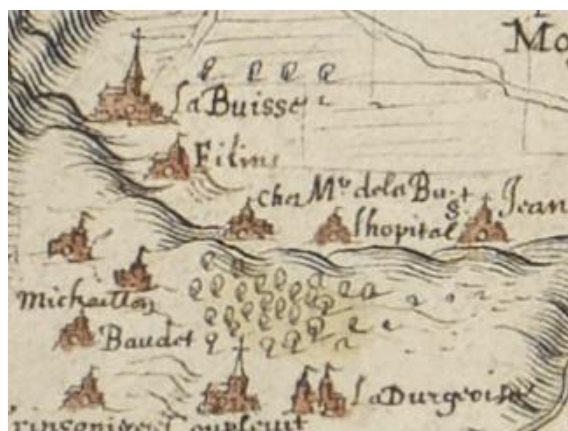 Mo
la Buisse
Filins
chez Mr de la Buis
lhopital
Jean
Michaillon
Baudet
la Durgeoise
Coupleuit